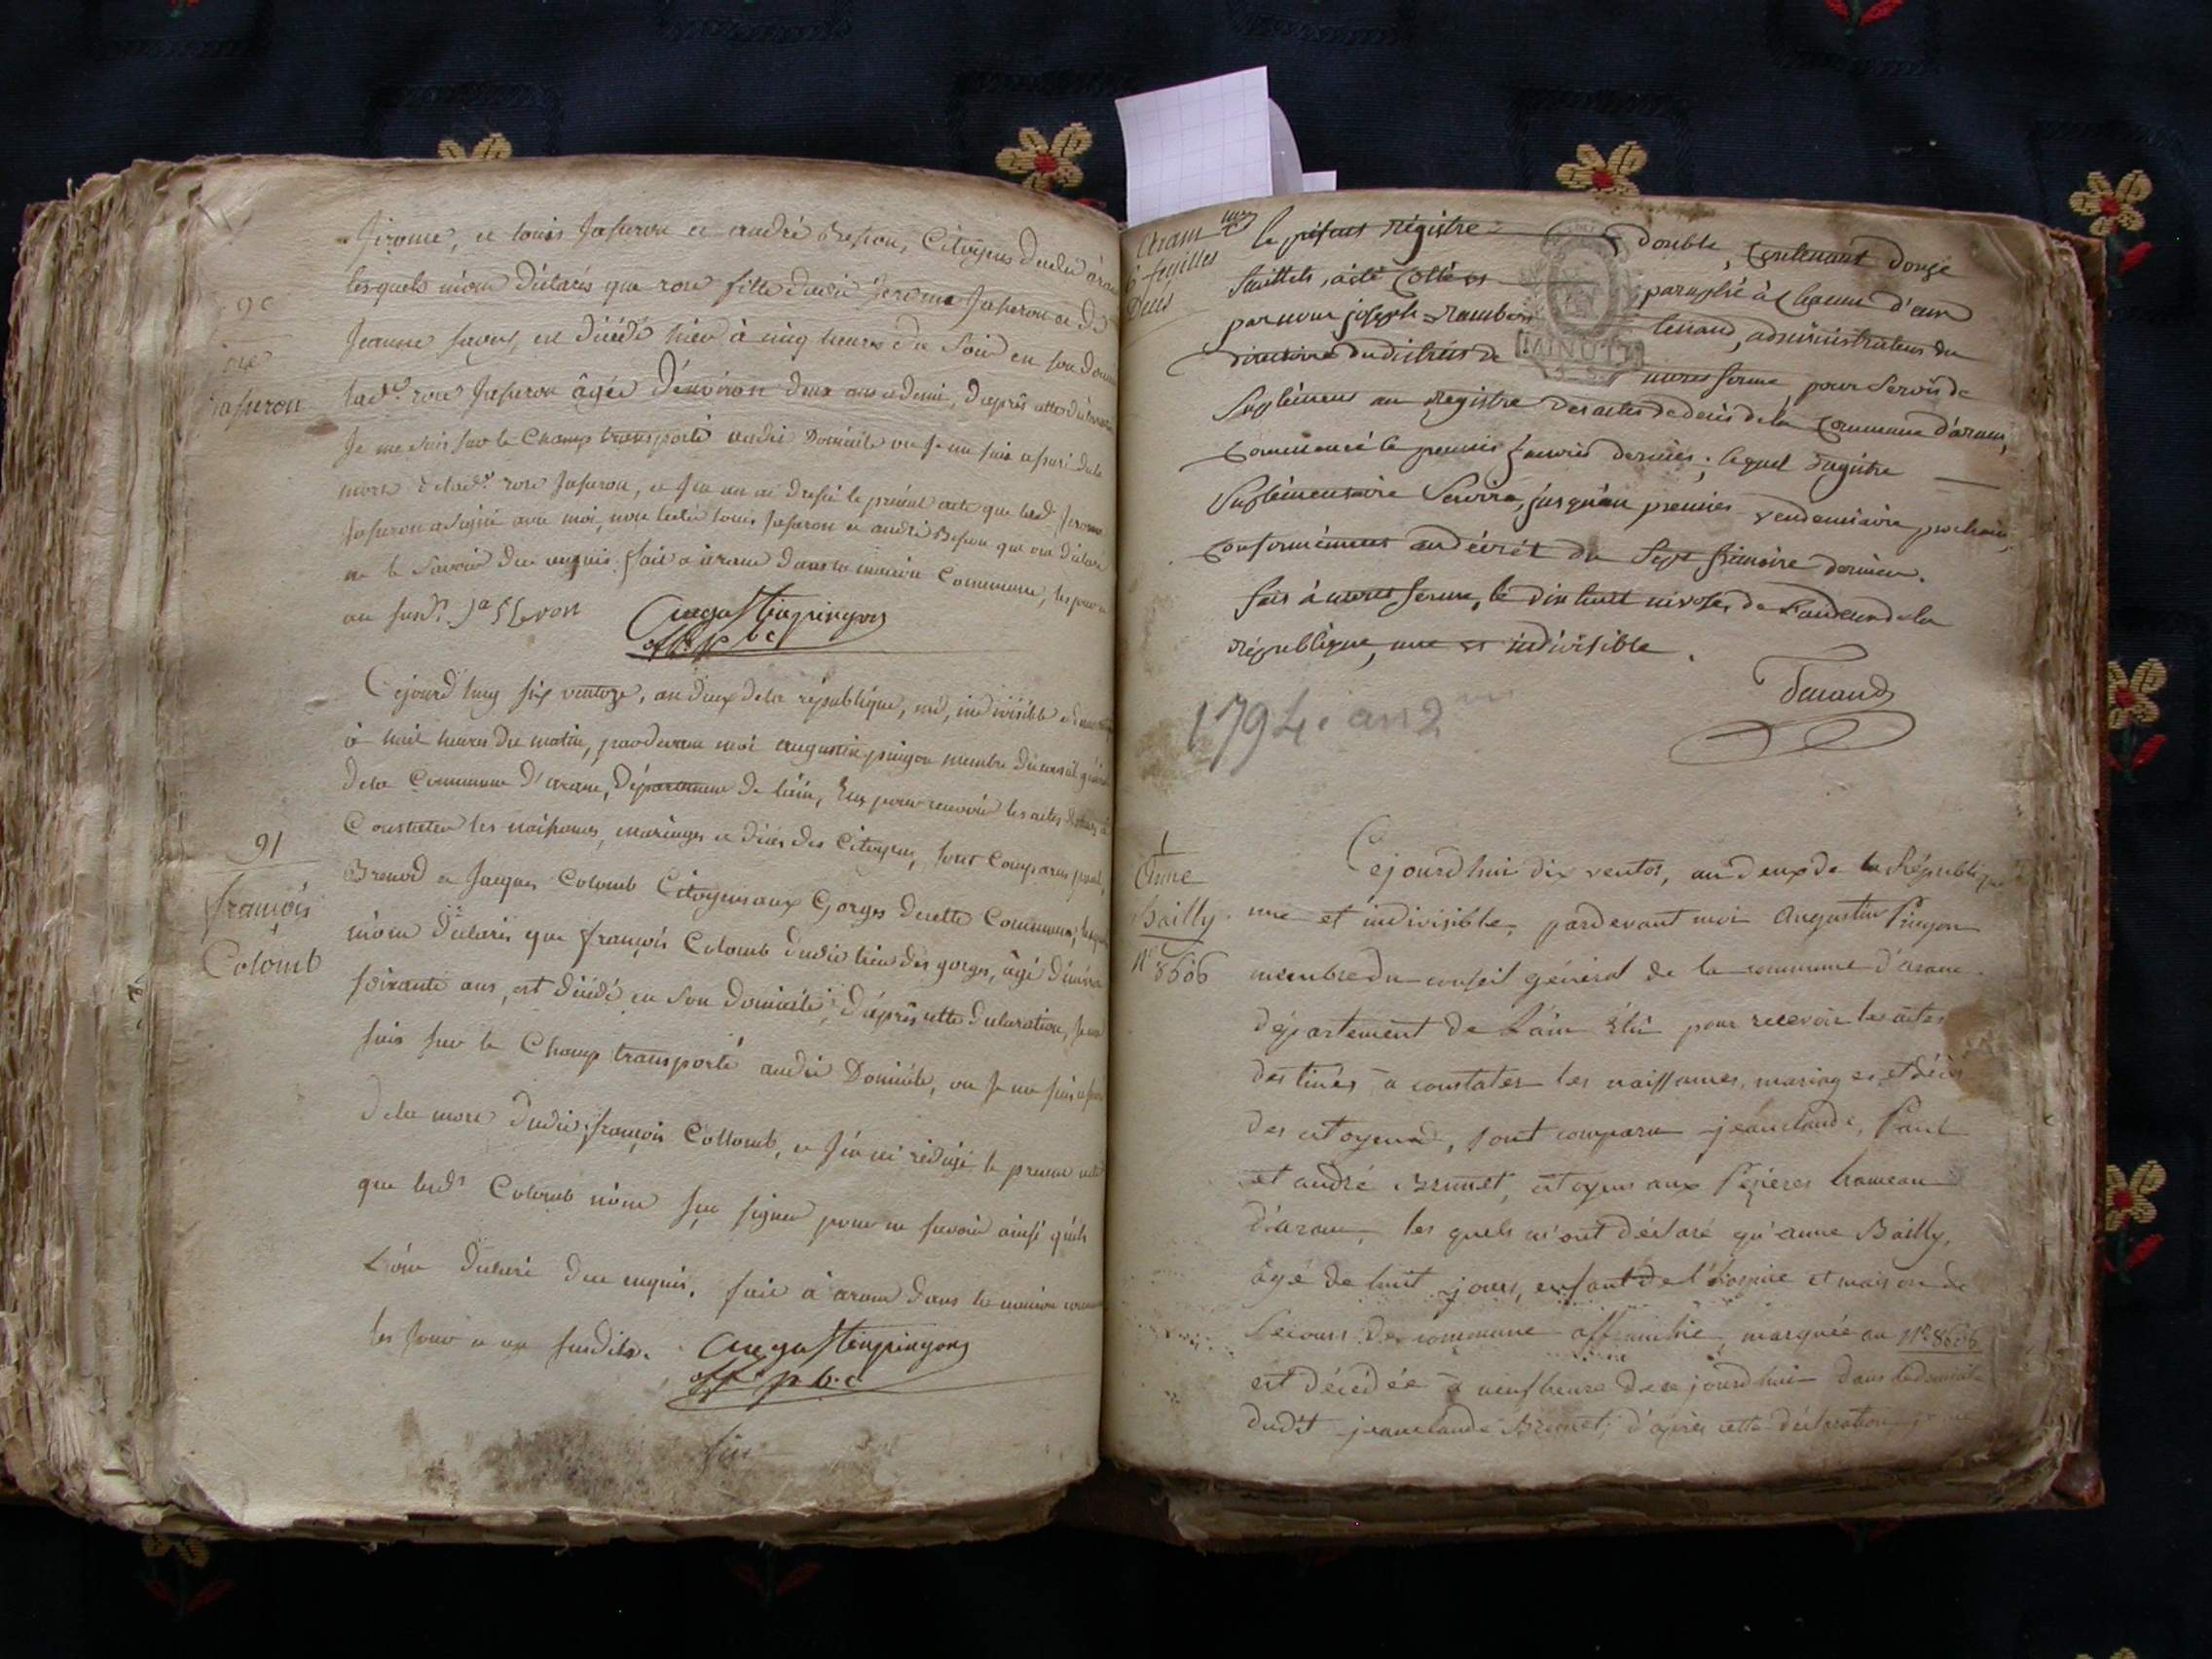 90
rose
Jasseron
Jérome, et louis Jasseron et andré Besson, Citoyens dudit aran
lesquels m'ont déclarés que rose fille dudit Jérome Jasseron et de
Jeanne savey, est décédé hier à cinq heures du Soir en son dom
lad.e rose Jasseron âgée d'environ deux ans et demi, d'après cette déclaration
Je me suis sur le Champ transporté audit Domicile ou Je me suis assuré de la
mort de lad.e rose Jasseron, et J'en ai dressé le présent acte que led. Jerome
Jasseron a Signé avec moi, non lesdits louis Jasseron et andré Besson qui ont déclaré
ne le Savoir de ce enquis. fait a arane dans la maison Commune, les jour et
an susd.s Jasseron
Augustin pingon
off. p.b.c
91
françois
Colomb
Cejourd'huy six ventoze, an deux de la république, une, indivisible
à huit heures du matin, pardevant moi augustin pingon membre du conseil général
de la Commune d'arane, Département de l'ain, Elu pour recevoir les actes destinés à
Constater les naissances, mariages et décès des Citoyens, sont Comparus
Brenod et Jacques Colomb Citoyens aux Gorges de cette Commune,
m'ont déclarés que françois Colomb dudit lieu des gorges, âgé d'environ
soixante ans, est décédé en Son Domicile; D'après cette déclaration, Je me
suis sur le Champ transporté audit Domicile, ou Je me suis assuré
de la mort dudit françois Collomb, et J'en ai rédigé le présent acte
que lesd.s Colomb n'ont sçu signer pour ne savoir ainsi qu'ils
L'ont déclaré de ce enquis, fait à arane dans la maison commune
les Jour et an susdits.
Augustin pingon
off. p.b.c
fin
aram
6 feuilles
Deces
le présent régistre double, contenant douze
feuillets, à été Cotté et paraphé à chacun d'eux
par nous joseph rambert tenand, administrateur du
directoire du district de montferme, pour servir de
Suplément au Registre des actes de décès de la Commune d'aram,
Commencé le premier Janvier dernier; lequel registre
Suplémentaire Servira, jusqu'au premier vendemiaire prochain,
conformément au décrét du Sept frimaire dernier.
fait à montferme, le dix huit nivose, de l'an deux de la
république, une et indivisible.
Tenand
MINUTE
1794. an 2
1
Anne
Bailly
N° 8606
Cejourd'hui dix ventos, an deux de la République
une et indivisible, pardevant moi Augustin Pingon
membre du conseil général de la commune d'arane
département de L'ain Elu pour recevoir les actes
destinés à constater les naissances, mariages et décès
des citoyens, sont comparu jeanclaude, Paul
et andré Brunet, citoyens aux Pezieres hameau
d'aram, les quels m'ont déclaré qu'anne Bailly,
âgé de huit jours, enfant de l'hospice et maison de
Secours de commune affranchie, marquée au N° 8606
est décédée à neuf heure de ce jourd'hui dans le domicile
dudit jeanclaude Brunet; d'après cette déclaration